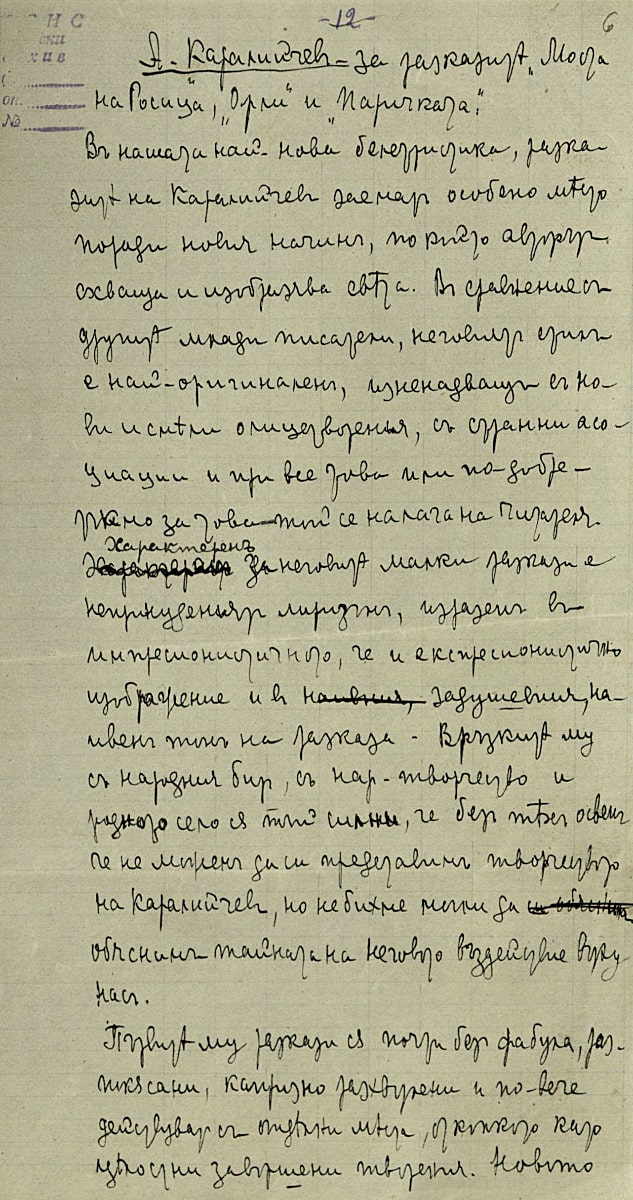 -12-
6
Н С
ски
хив
оп.
№
А. Каралийчев – За разказитѣ „Моста
на Росица", „Орли" и „Паричката".
Въ нашата най-нова белетристика, разка-
зитѣ на Каралийчевъ заематъ особено мѣсто
поради новия начинъ, по който авторътъ
схваща и изобразява свѣта. Въ сравнение съ
другитѣ млади писатели, неговиятъ стилъ
е най-оригиналенъ, изненадващъ съ но-
ви и смѣли олицетворения, съ странни асо-
циации и при все това или по-добре –
тъкмо за това – той се налага на читателя.
Характеренъ
За неговитѣ малки разкази е
непринудениятъ лиризъмъ, изразенъ въ
импресионистичното, че и експресионистично
изображение и въ наивния, задушевния, на-
ивенъ тонъ на разказа – Връзкитѣ му
съ народния бит, съ нар-творчество и
родното село сѫ тъй силни, че безъ тѣхъ освенъ
че не можемъ да си представимъ творчеството
на Каралийчев, но не бихме могли да си обясним
обяснимъ тайната на неговото въздействие върху
насъ.
Първитѣ му разкази сѫ почти безъ фабула, раз-
покѫсани, капризно разхвърлени и по-вече
действуватъ съ отдѣлни мѣста, отколкото като
цѣлостни завършени творения. Новото